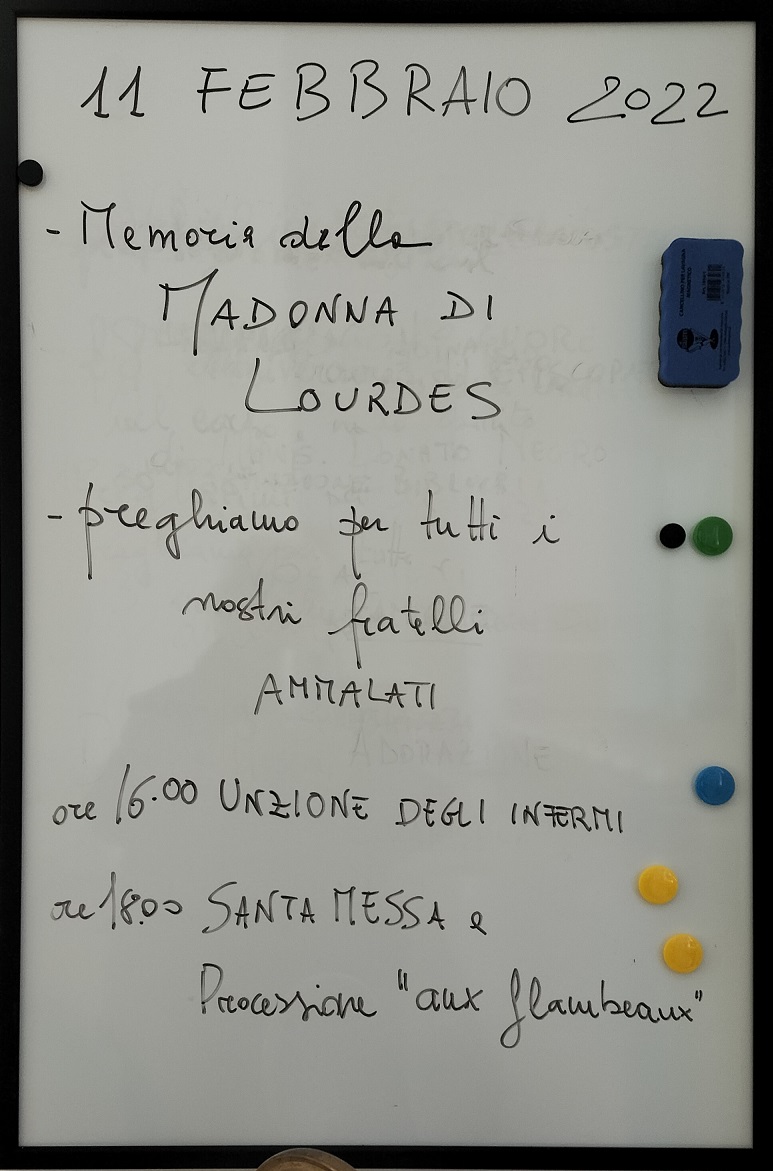 11 FEBBRAIO 2022
- Memoria della
MADONNA DI
LOURDES
- preghiamo per tutti i
nostri fratelli
AMMALATI
ore 16.00 UNZIONE DEGLI INFERMI
ore 18.00 SANTA MESSA e
Processione "aux flambeaux"